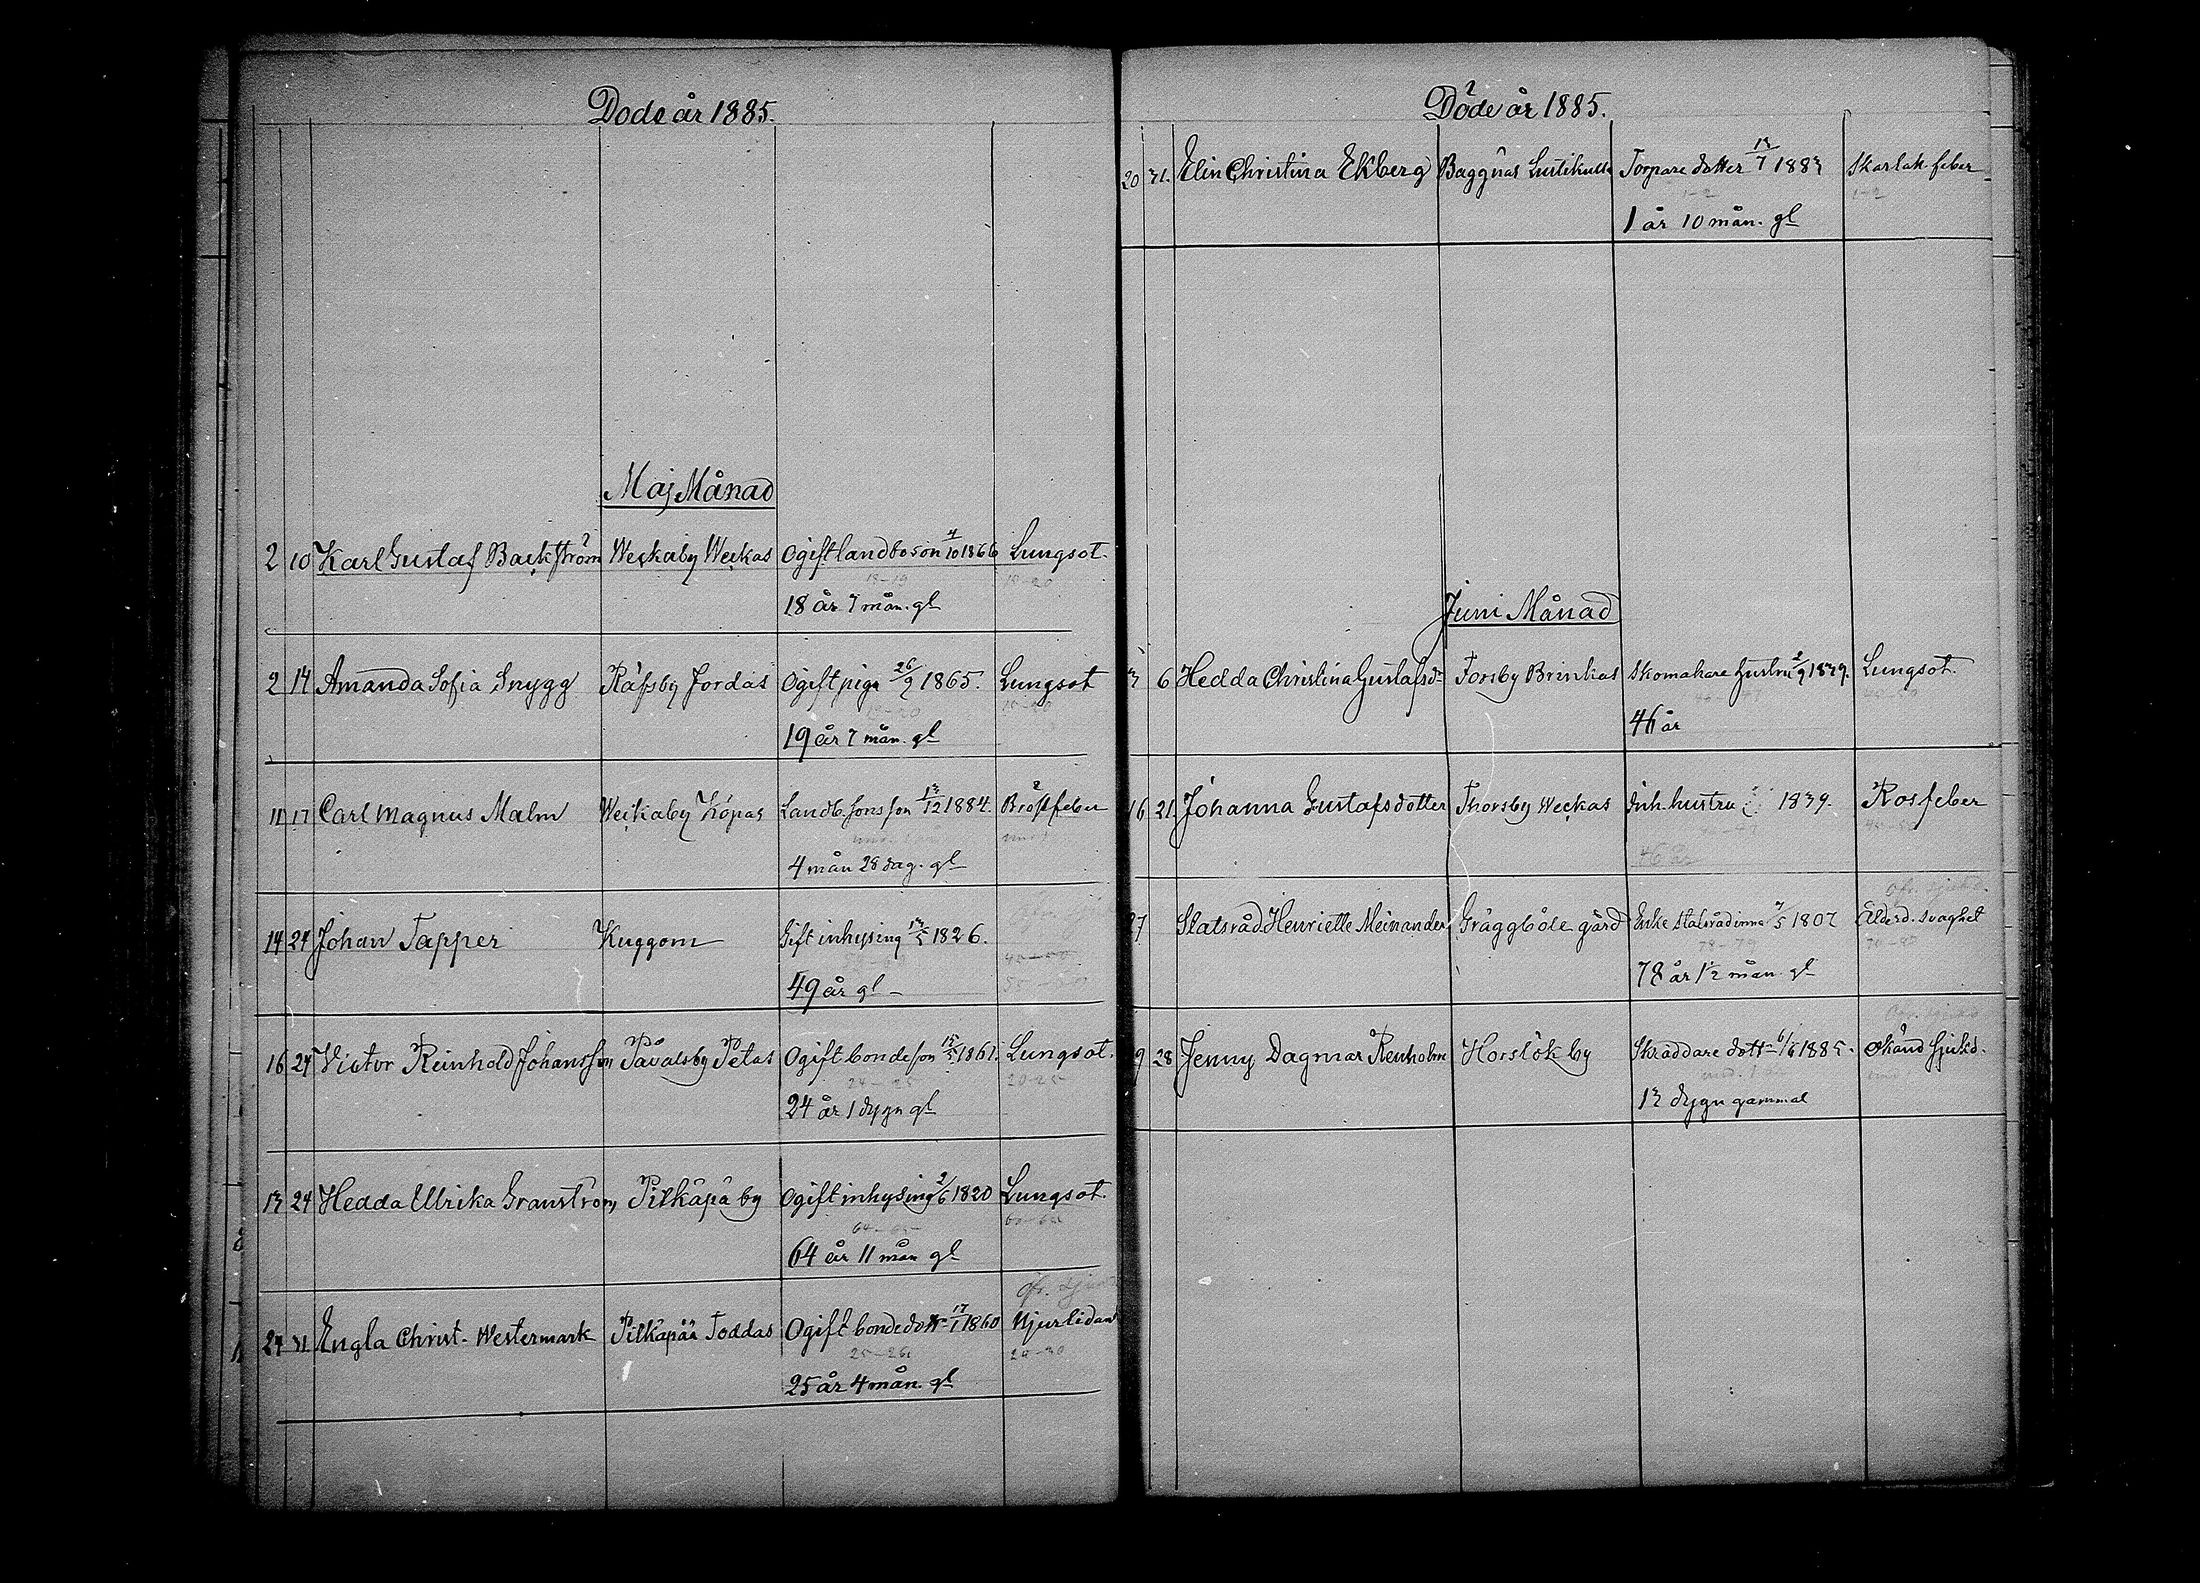 Döde år 1885.
Maj Månad
2 10 Karl Gustaf Backström Weckaby Weckas Ogift landboson 4/10 1866 Lungsot.
18-19
18 år 7 mån. gl
2 14 Amanda Sofia Snygg Räfsby Jordas Ogift piga 26/9 1865. Lungsot
19 år 7 mån. gl
11 17 Carl Magnus Malm Weckaby Löpas Landb. sons son 13/12 1884. Bröstfeber
4 mån 28 dag. gl
14 24 Johan Tapper Kuggom Gift inhysing 13/5 1826.
49 år gl
16 24 Victor Reinhold Johansson Påvalsby Petas Ogift bondeson 15/5 1861. Lungsot.
24-25 20-25
24 år 1 dygn gl
13 24 Hedda Ulrika Granström, Pitkäpä by Ogift inhysing 2/6 1820 Lungsot.
64 år 11 mån gl
24 31 Engla Christ. Westermark Pitkäpää Toddas Ogift bondedottr 17/1 1860 Njurlidan
25-26
25 år 4 mån. gl
Döde år 1885.
20 31. Elin Christina Ekberg Baggnäs Lustikulla Torpare dotter 13/7 1883 Skarlak. feber
1-2 1-2
1 år 10 mån. gl
Juni Månad
3 6 Hedda Christina Gustafsd. Forsby Brinkas Skomakare hustru 2/9 1839. Lungsot.
46 år
16 21. Johanna Gustafsdotter Thorsby Weckas Inh. hustru 1839. Rosfeber
46 år
27 Statsråd Henriette Meinander Gräggböle gård Enke statsrådinna 7/5 1807 Ålderd. svaghet
78-79
78 år 1½ mån. gl
9 28 Jenny Dagmar Renholm Horslök by Skräddare dottr 6/6 1885. Okänd sjukd.
13 dygn gammal